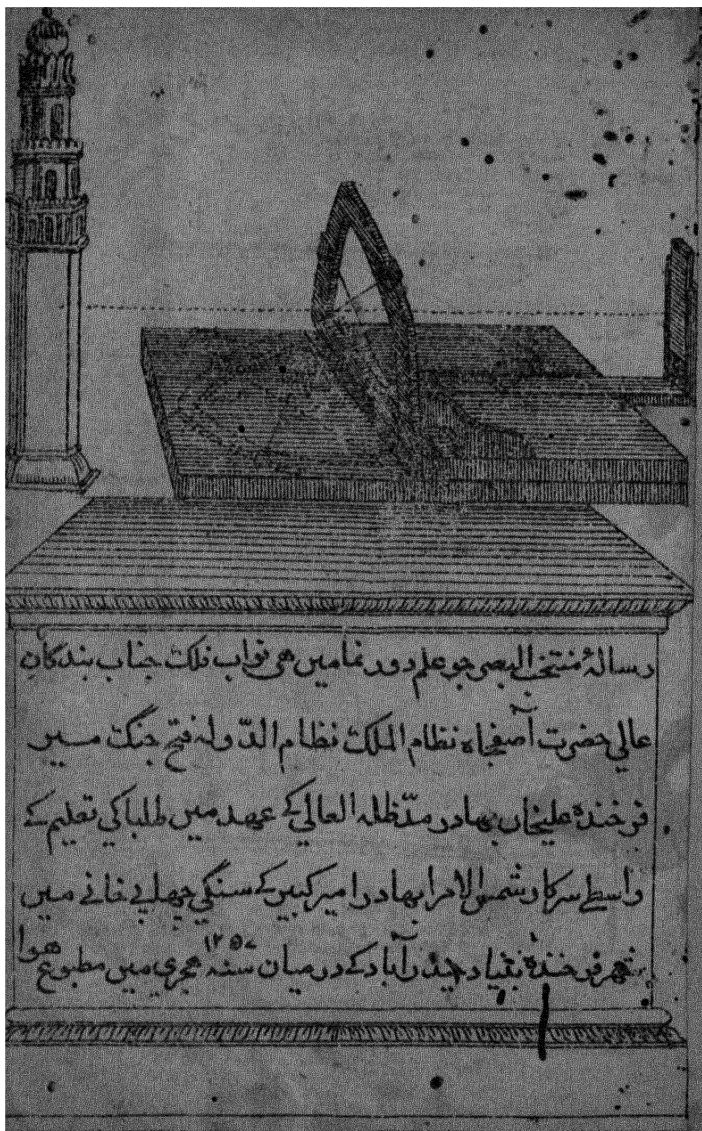 رسالۂ منتخب البصر جو علم دور نما میں هی نواب فلک جناب بندکان
عالي حضرت آصفجاه نظام الملک نظام الدّوله فتح جنگ میر
فرخنده علیخان بهادر مدّ ظله العالي کے عهد میں طلبا کي تعلیم کے
واسطے سرکار شمس الامرا بهادر امیر کبیر کے سنگي چهاپے خانے میں
شهر فرخنده بنیاد حیدرآباد کے درمیان سنه ۱۲۵۷ هجري میں مطبوع هوا